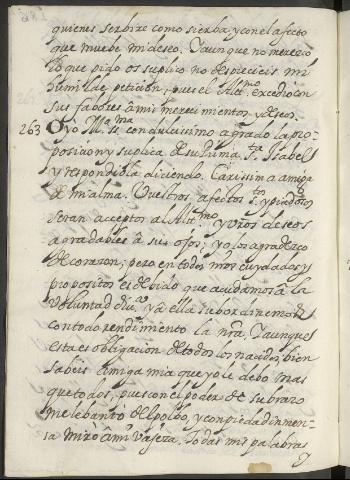 quienes serbire como sierba, y con el afecto
que muebe mi deseo. Y aunque no merezco
lo que pido os suplico no despreciéis mi
humilde peticion; pues el Alt.mo excedio con
sus fabores à mis merecimientos y deseos.
263 Oyo M.a SS.ma con dulcisimo agrado la pro-
posicion y suplica de su Prima S.ta Isabel
y respondiola diciendo. Carissima amiga
de mi alma. Vuestros afectos S.tos y piadosos
seran aceptos al Alt.mo y vros deseos
agradables a sus ojos; yo los agradezco
de coraçon; pero en todos nros cuydados y
propositos es debido que acudamos à la
voluntad diu.a y à ella subordinemos
con todo rendimiento la nrã. Y aunque
esta es obligacion de todos los nacidos, bien
sabeis amiga mia que yo le debo mas
que todos, pues con el poder de su brazo
me lebantò del polbo, y con piedad inmen-
sa mirò à mi vajeza. Todas mis palabras
y